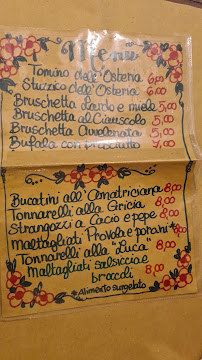 Menù
Tomino dell'Osteria 6,00
Stuzzico dell'Osteria 6,00
Bruschetta Lardo e miele 5,00
Bruschetta al Ciauscolo 5,00
Bruschetta Avvelenata 5,00
Bufala con prosciutto 7,00
Bucatini all'Amatriciana 8,00
Tonnarelli alla Gricia 8,00
Strangozzi a Cacio e pepe 8,00
Maltagliati Provola e porcini* 8,00
Tonnarelli alla "Luca" 8,00
Maltagliati salsiccia e
broccoli 8,00
*Alimento surgelato